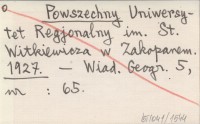 Powszechny Uniwersy-
tet Regjonalny im. St.
Witkiewicza w Zakopanem.
1927. — Wiad. Geogr. 5,
nr : 65.